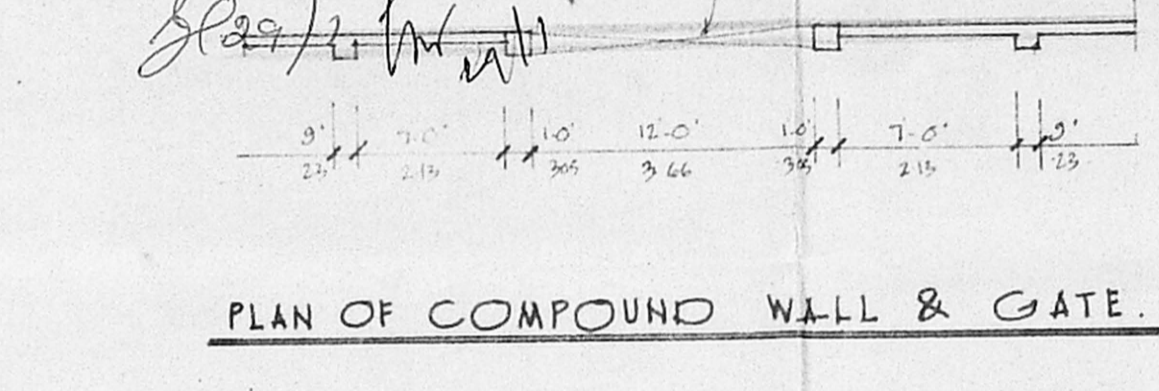 9" 7-0" 1-0" 12-0" 1-0" 7-0" 9"
23 2.13 .305 3.66 .305 2.13 .23
PLAN OF COMPOUND WALL & GATE.